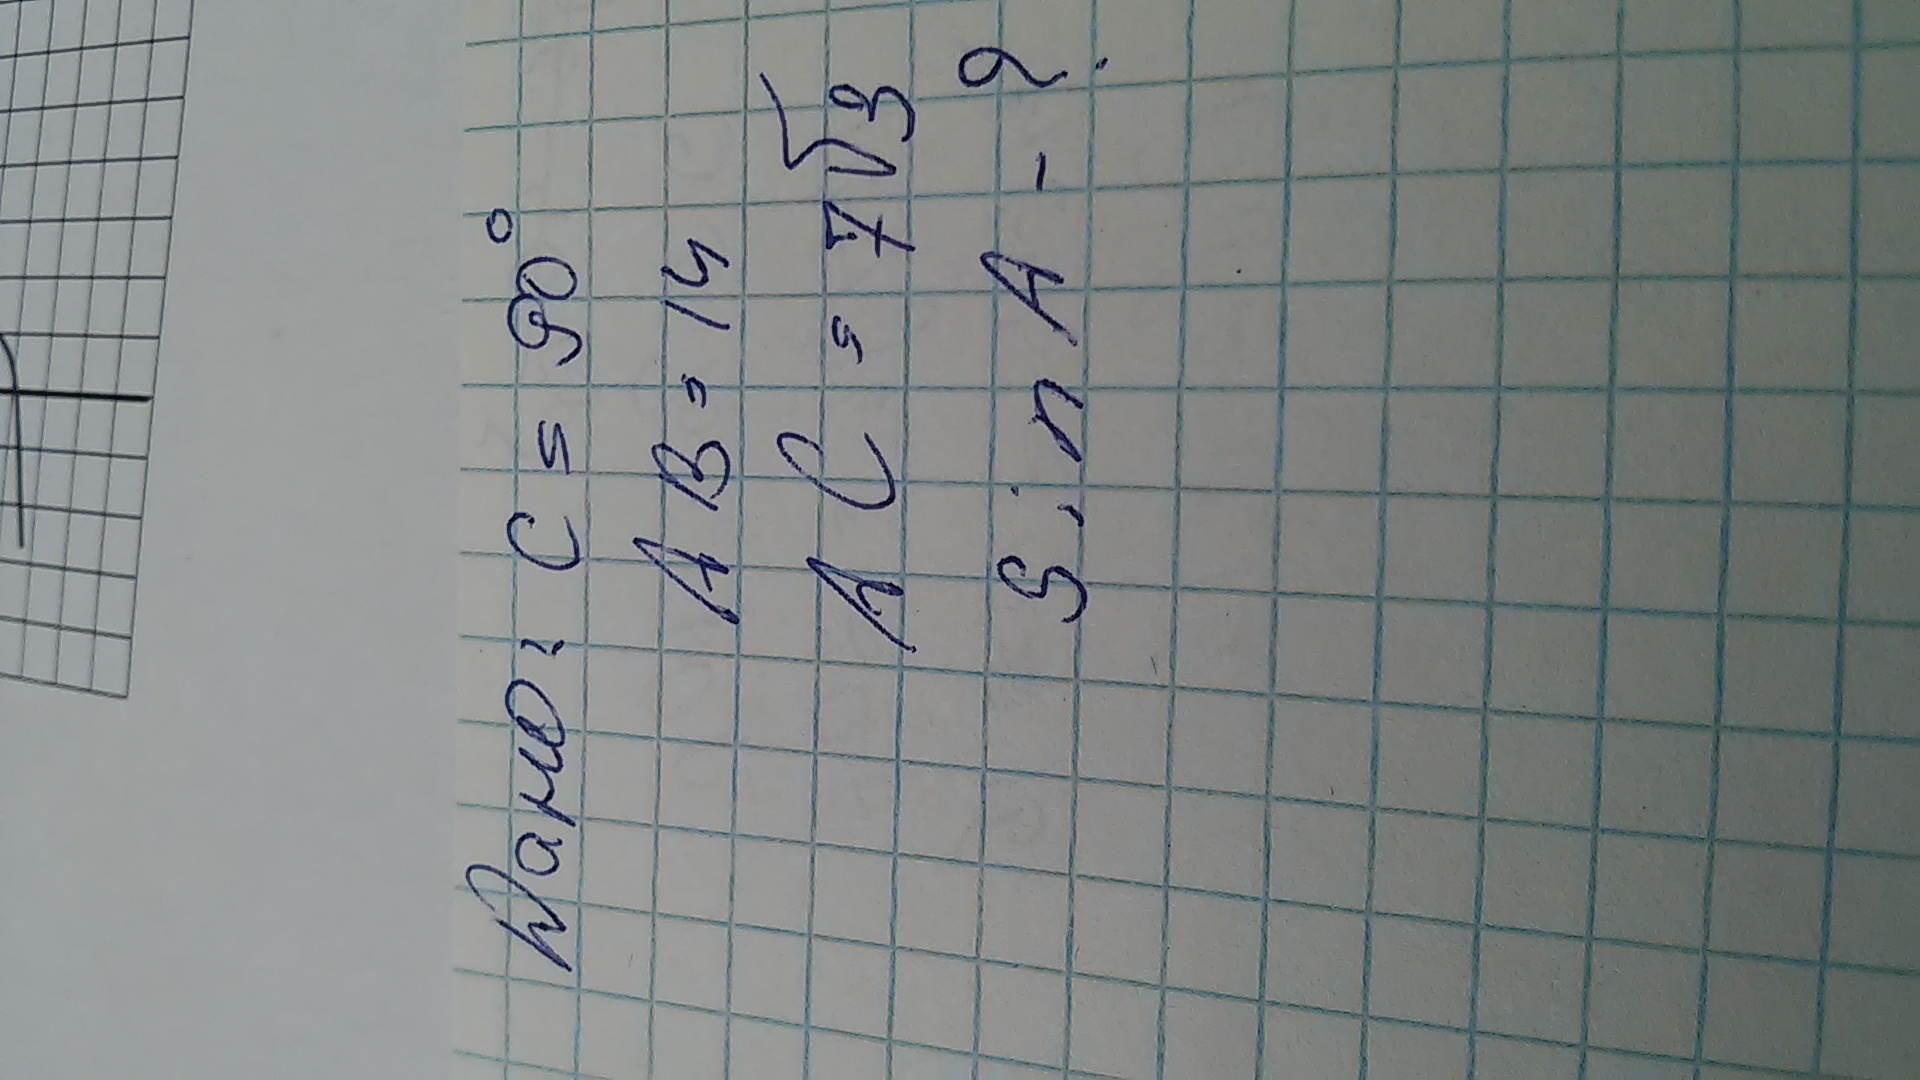 Дано: C = 90°
AB = 14
AC = 7√3
Sin A - ?